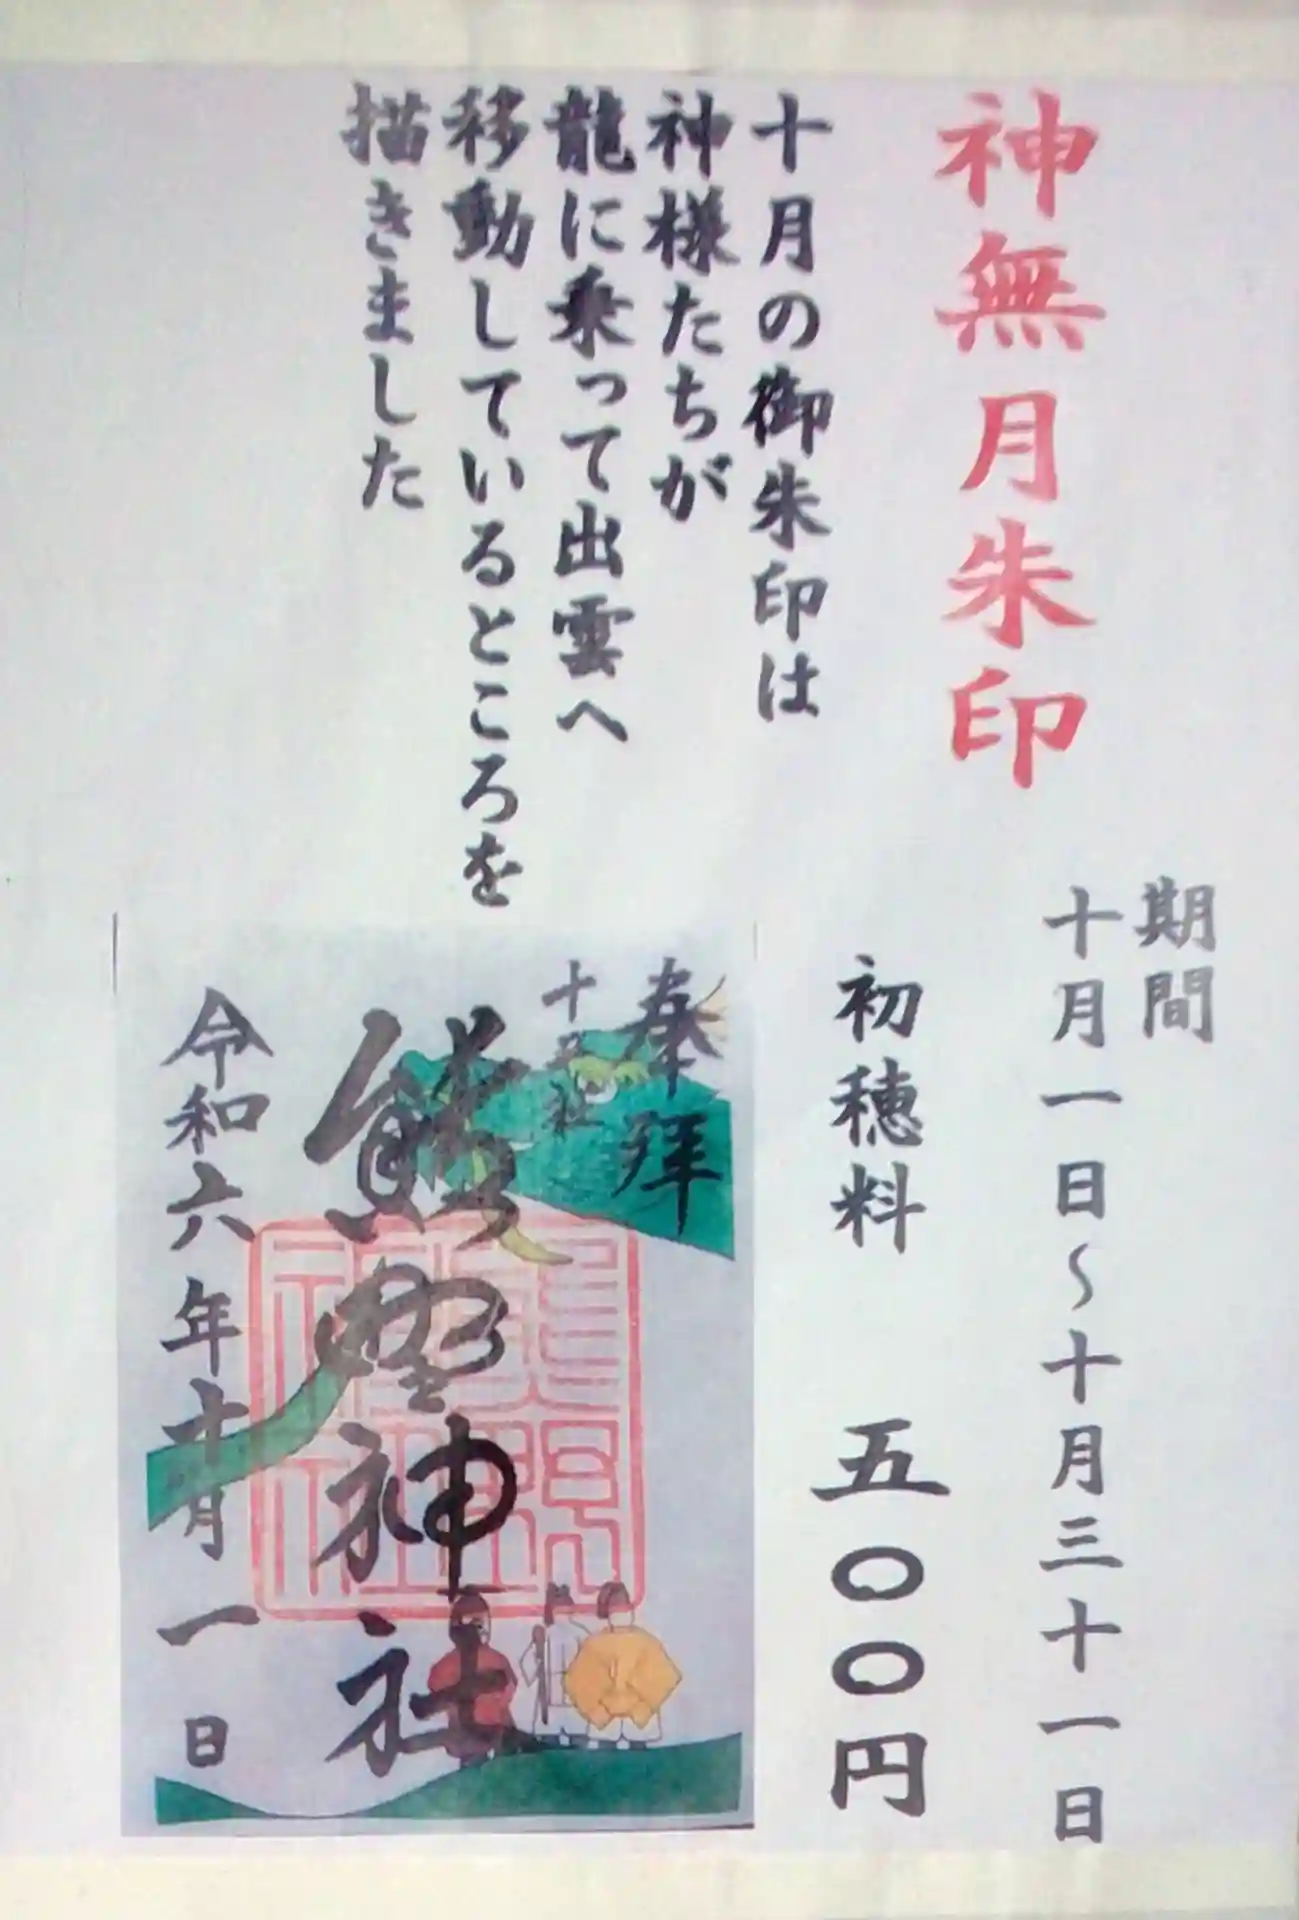 神無月朱印
期間
十月一日～十月三十一日
初穂料 五〇〇円
十月の御朱印は
神様たちが
龍に乗って出雲へ
移動しているところを
描きました
奉拝
十二社
熊野神社
令和六年十月一日